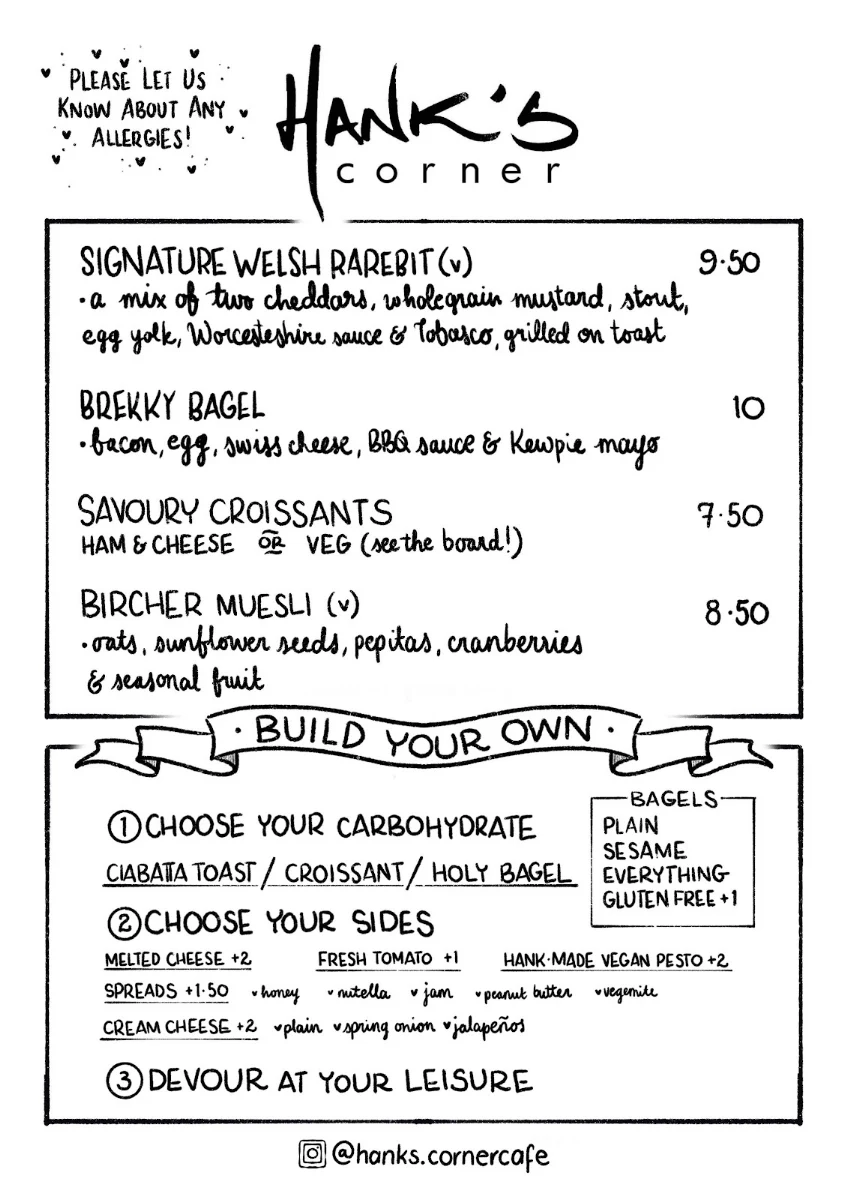 PLEASE LET US
KNOW ABOUT ANY
ALLERGIES!
HANK'S
corner
SIGNATURE WELSH RAREBIT (v) 9.50
·a mix of two cheddars, wholegrain mustard, stout,
egg yolk, Worcesteshire sauce & Tobasco, grilled on toast
BREKKY BAGEL 10
·bacon, egg, swiss cheese, BBQ sauce & Kewpie mayo
SAVOURY CROISSANTS 7.50
HAM & CHEESE OR VEG (see the board!)
BIRCHER MUESLI (v) 8.50
·oats, sunflower seeds, pepitas, cranberries
& seasonal fruit
· BUILD YOUR OWN ·
① CHOOSE YOUR CARBOHYDRATE
CIABATTA TOAST / CROISSANT / HOLY BAGEL
BAGELS
PLAIN
SESAME
EVERYTHING
GLUTEN FREE +1
② CHOOSE YOUR SIDES
MELTED CHEESE +2 FRESH TOMATO +1 HANK-MADE VEGAN PESTO +2
SPREADS +1.50 honey nutella jam peanut butter vegemite
CREAM CHEESE +2 plain spring onion jalapeños
③ DEVOUR AT YOUR LEISURE
@hanks.cornercafe